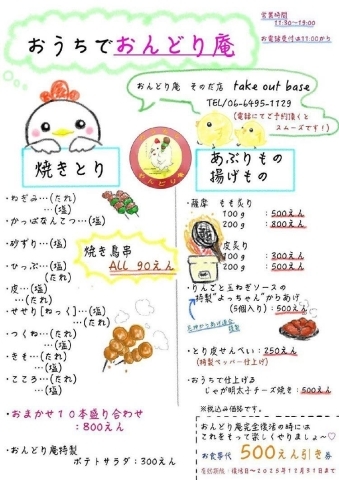 営業時間
11:30〜19:00
お電話受付は11:00から
おうちでおんどり庵
おんどり庵 そのだ店 take out base
TEL/06-6495-1129
(電話にてご予約頂くと
スムーズです!)
焼きとり
おんどり庵
・ねぎみ…(たれ)
…(塩)
・かっぱなんこつ…(塩)
・砂ずり…(塩)
・ひっぷ…(塩)
(たれ)
・皮…(塩)
…(たれ)
・せせり[ねっく]…(塩)
(たれ)
・つくね…(たれ)
(塩)
・きも…(たれ)
(塩)
・こころ…(たれ)
(塩)
焼き鳥串
ALL 90えん
・おまかせ10本盛り合わせ
:800えん
・おんどり庵特製
ポテトサラダ:300えん
あぶりもの
揚げもの
・薩摩 もも炙り
100g :500えん
200g :800えん
皮炙り
100g :300えん
200g :500えん
・りんごと玉ねぎソースの
特製"よっちゃん"からあげ
(5個入り):500えん
・とり皮せんべい:250えん
(特製ペッパー仕上げ)
・おうちで仕上げる
じゃが明太子チーズ焼き:500えん
※税込み価格です。
おんどり庵完全復活の時には
これをもって楽しくやりましょ〜♡
お食事代 500えん引き券
有効期限:復活日〜2025年12月31日まで